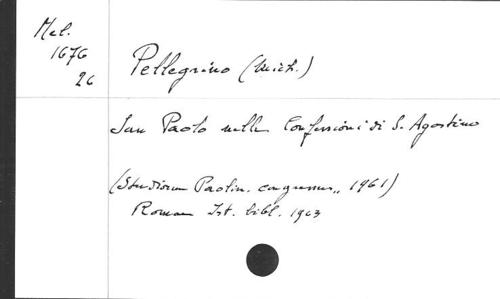 Mel.
1676
26
Pellegrino (Mich.)
San Paolo nelle Confessioni di S. Agostino
(Studiorum Paolin. congressus,, 1961)
Romae Ist. bibl. 1963